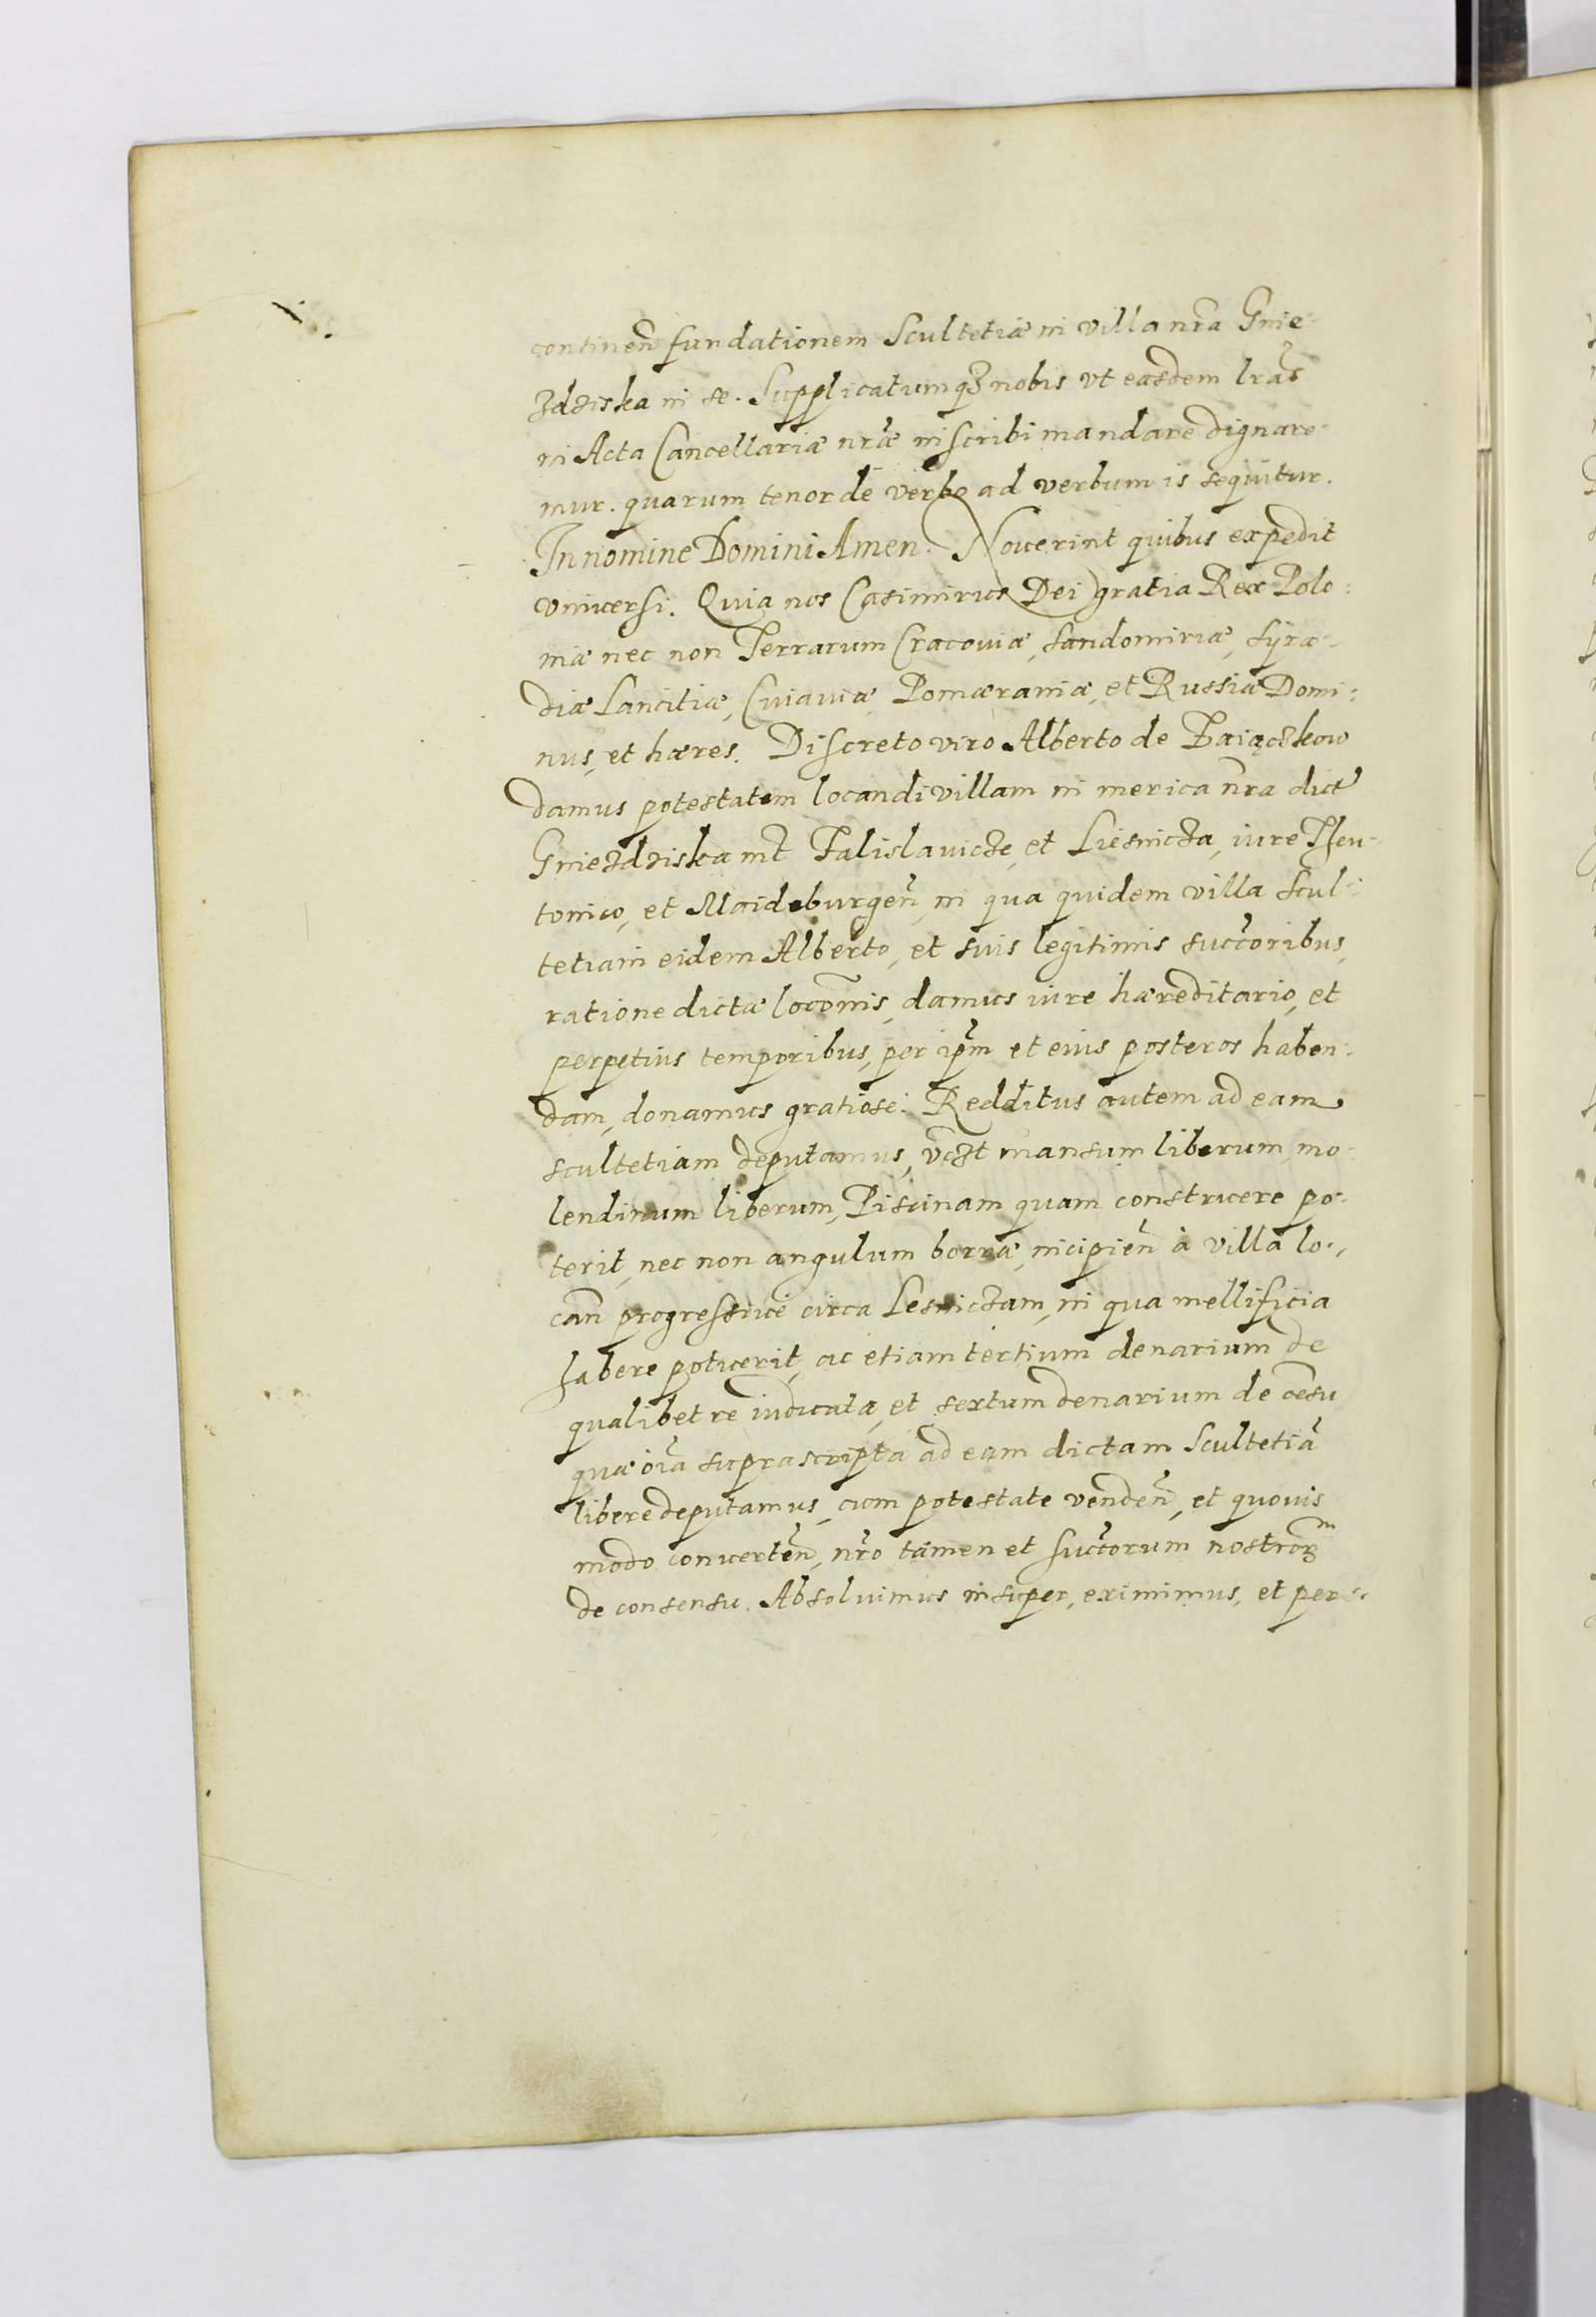 continen̄ fundationem Scultetiæ in villa nr̄a Gnie-
zdziska in se. Supplicatumqȝ nobis vt easdem lr̄as
in Acta Cancellariæ nr̄æ inscribi mandare dignare-
mur. quarum tenor de verbo ad verbum is sequitur.
In nomine Domini Amen. Nouerint quibus expedit
vniuersi. Quia nos Casimirus Dei gratia Rex Polo:
niæ nec non Terrarum Cracouiæ, Sandomiriæ, Syra-
diæ Lancitiæ, Cuiauiæ Pomæraniæ, et Russiæ Domi:
nus, et hæres. Discreto viro Alberto de Zaiączkow
damus potestatem locandi villam in merica nr̄a dict̄
Gniezdziska int̄ Falislavicze, et Liesnicza, iure Theu-
tonico, et Maideburgen̄, in qua quidem villa Scul-
tetiam eidem Alberto, et suis legitimis succ̄oribus,
ratione dictæ locōnis, damus iure hæreditario, et
perpetius temporibus, per ip̄m et eius posteros haben:
dam, donamus gratiose. Redditus autem ad eam
scultetiam deputamus, vczt mansum liberum, mo-
lendinum liberum, Piscinam quam construere po-
terit, nec non angulum borræ, incipien̄ à villa lo-,
can̄ progressiue circa Lesniczam, in qua mellificia
habere potuerit, ac etiam tertium denarium de
qualibet re iudicata, et sextum denarium de cēsu
quæ oīa suprascripta ad eam dictam Scultetiā
libere deputamus, cum potestate venden̄, et quouis
modo conuerten̄, nr̄o tamen et succ̄orum nostror̄m
de consensu. Absoluimus insuper, eximimus, et per-